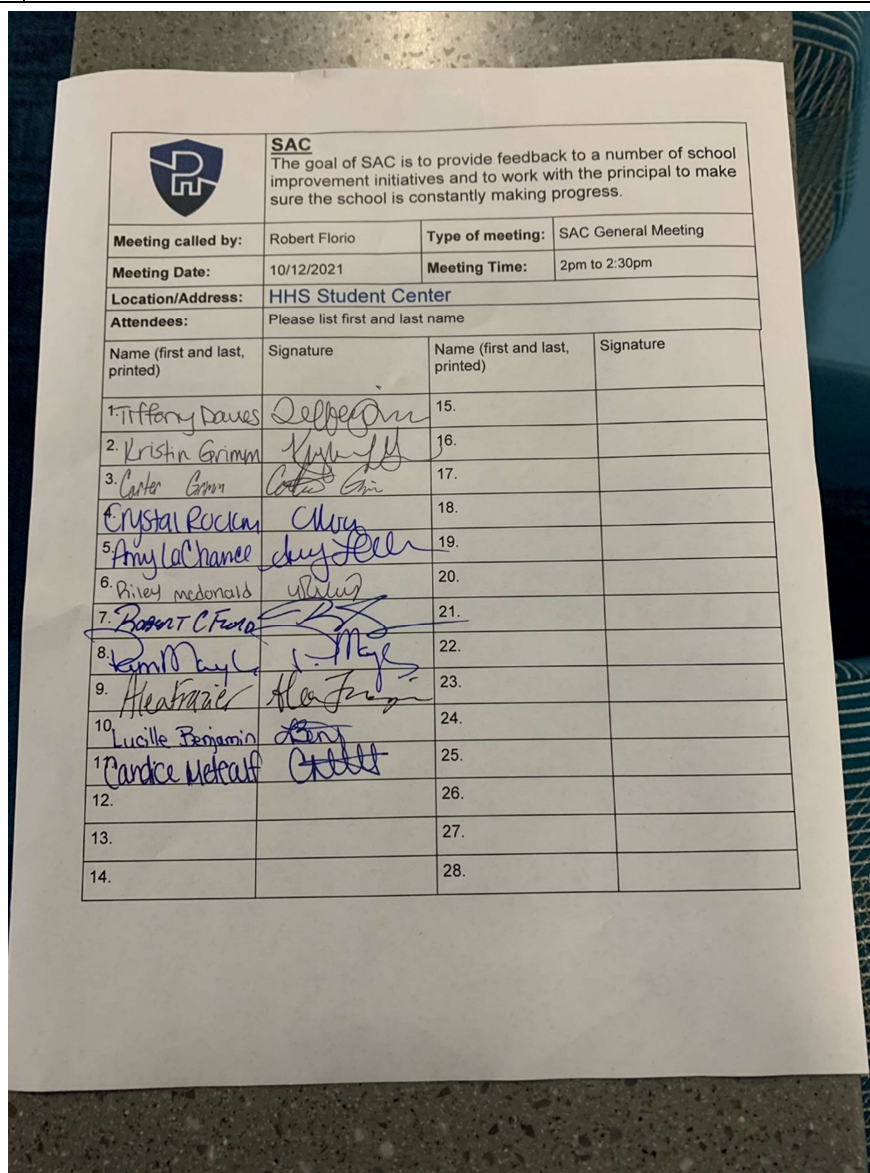 SAC
The goal of SAC is to provide feedback to a number of school
improvement initiatives and to work with the principal to make
sure the school is constantly making progress.
Meeting called by: Robert Florio Type of meeting: SAC General Meeting
Meeting Date: 10/12/2021 Meeting Time: 2pm to 2:30pm
Location/Address: HHS Student Center
Attendees: Please list first and last name
Name (first and last, printed) Signature Name (first and last, printed) Signature
1. Tiffany 15.
2. Kristin Grimm 16.
3. Carter Grimm 17.
4. Crystal 18.
5. Amy LaChance 19.
6. Riley mcdonald 20.
7. Robert C 21.
8. 22.
9. Alea Frazier Alea 23.
10. Lucille Benjamin 24.
11. Candice Metcalf 25.
12. 26.
13. 27.
14. 28.